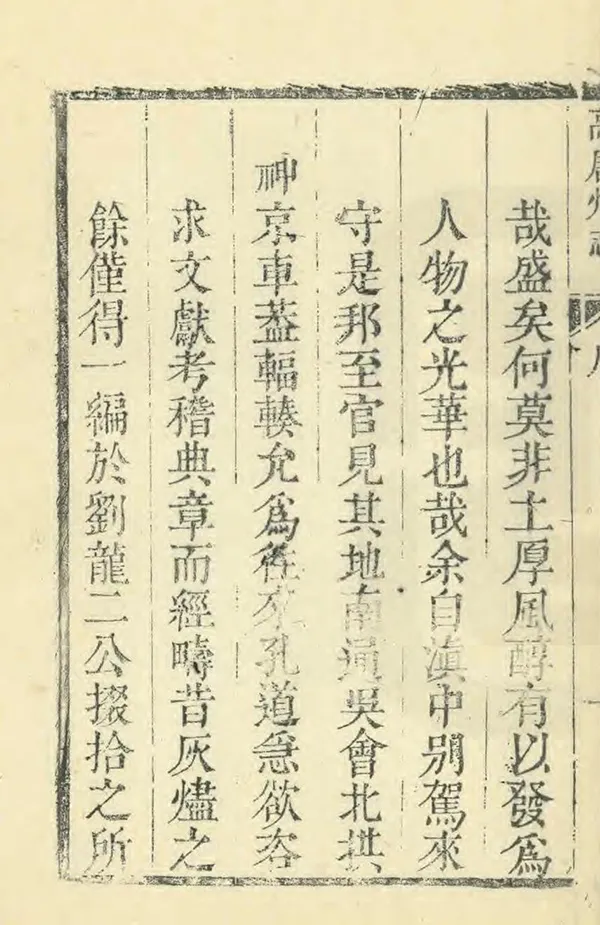 高唐州志
序
哉盛矣何莫非土厚風醇有以發為
人物之光華也哉余自滇中别駕來
守是邦至官見其地南通吳會北拱
神京車葢輻輳允為往來孔道急欲咨
求文獻考稽典章而經疇昔灰燼之
餘僅得一編於劉龍二公掇拾之所